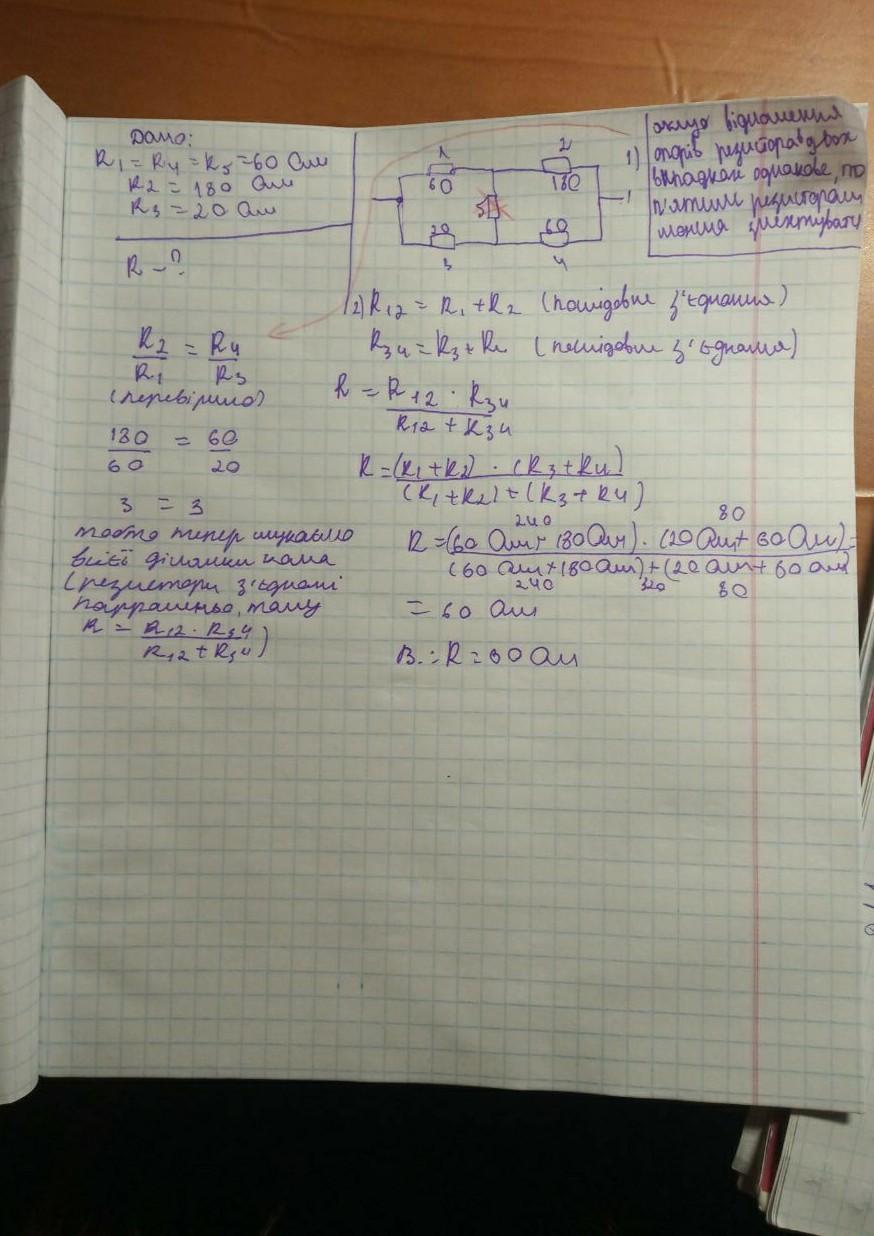 Дано:
R1 = R4 = R5 = 60 Ом
R2 = 180 Ом
R3 = 20 Ом
R - ?
1 2
60 180
5
20 60
3 4
1) якщо відношення
опорів резисторів в двох
випадках однакове, то
п'ятим резистором
можна знехтувати
R2/R1 = R4/R3
(перевіримо)
180/60 = 60/20
3 = 3
тобто тепер шукаємо
всієї ділянки кола
(резистори з'єднані
паралельно, тому
R = R12 · R34 / R12 + R34)
2) R12 = R1 + R2 (послідовне з'єднання)
R34 = R3 + R4 (послідовне з'єднання)
R = R12 · R34 / R12 + R34
R = (R1 + R2) · (R3 + R4) / (R1 + R2) + (R3 + R4)
240 80
R = (60 Ом + 180 Ом) · (20 Ом + 60 Ом) / (60 Ом + 180 Ом) + (20 Ом + 60 Ом) =
240 320 80
= 60 Ом
В.: R = 60 Ом